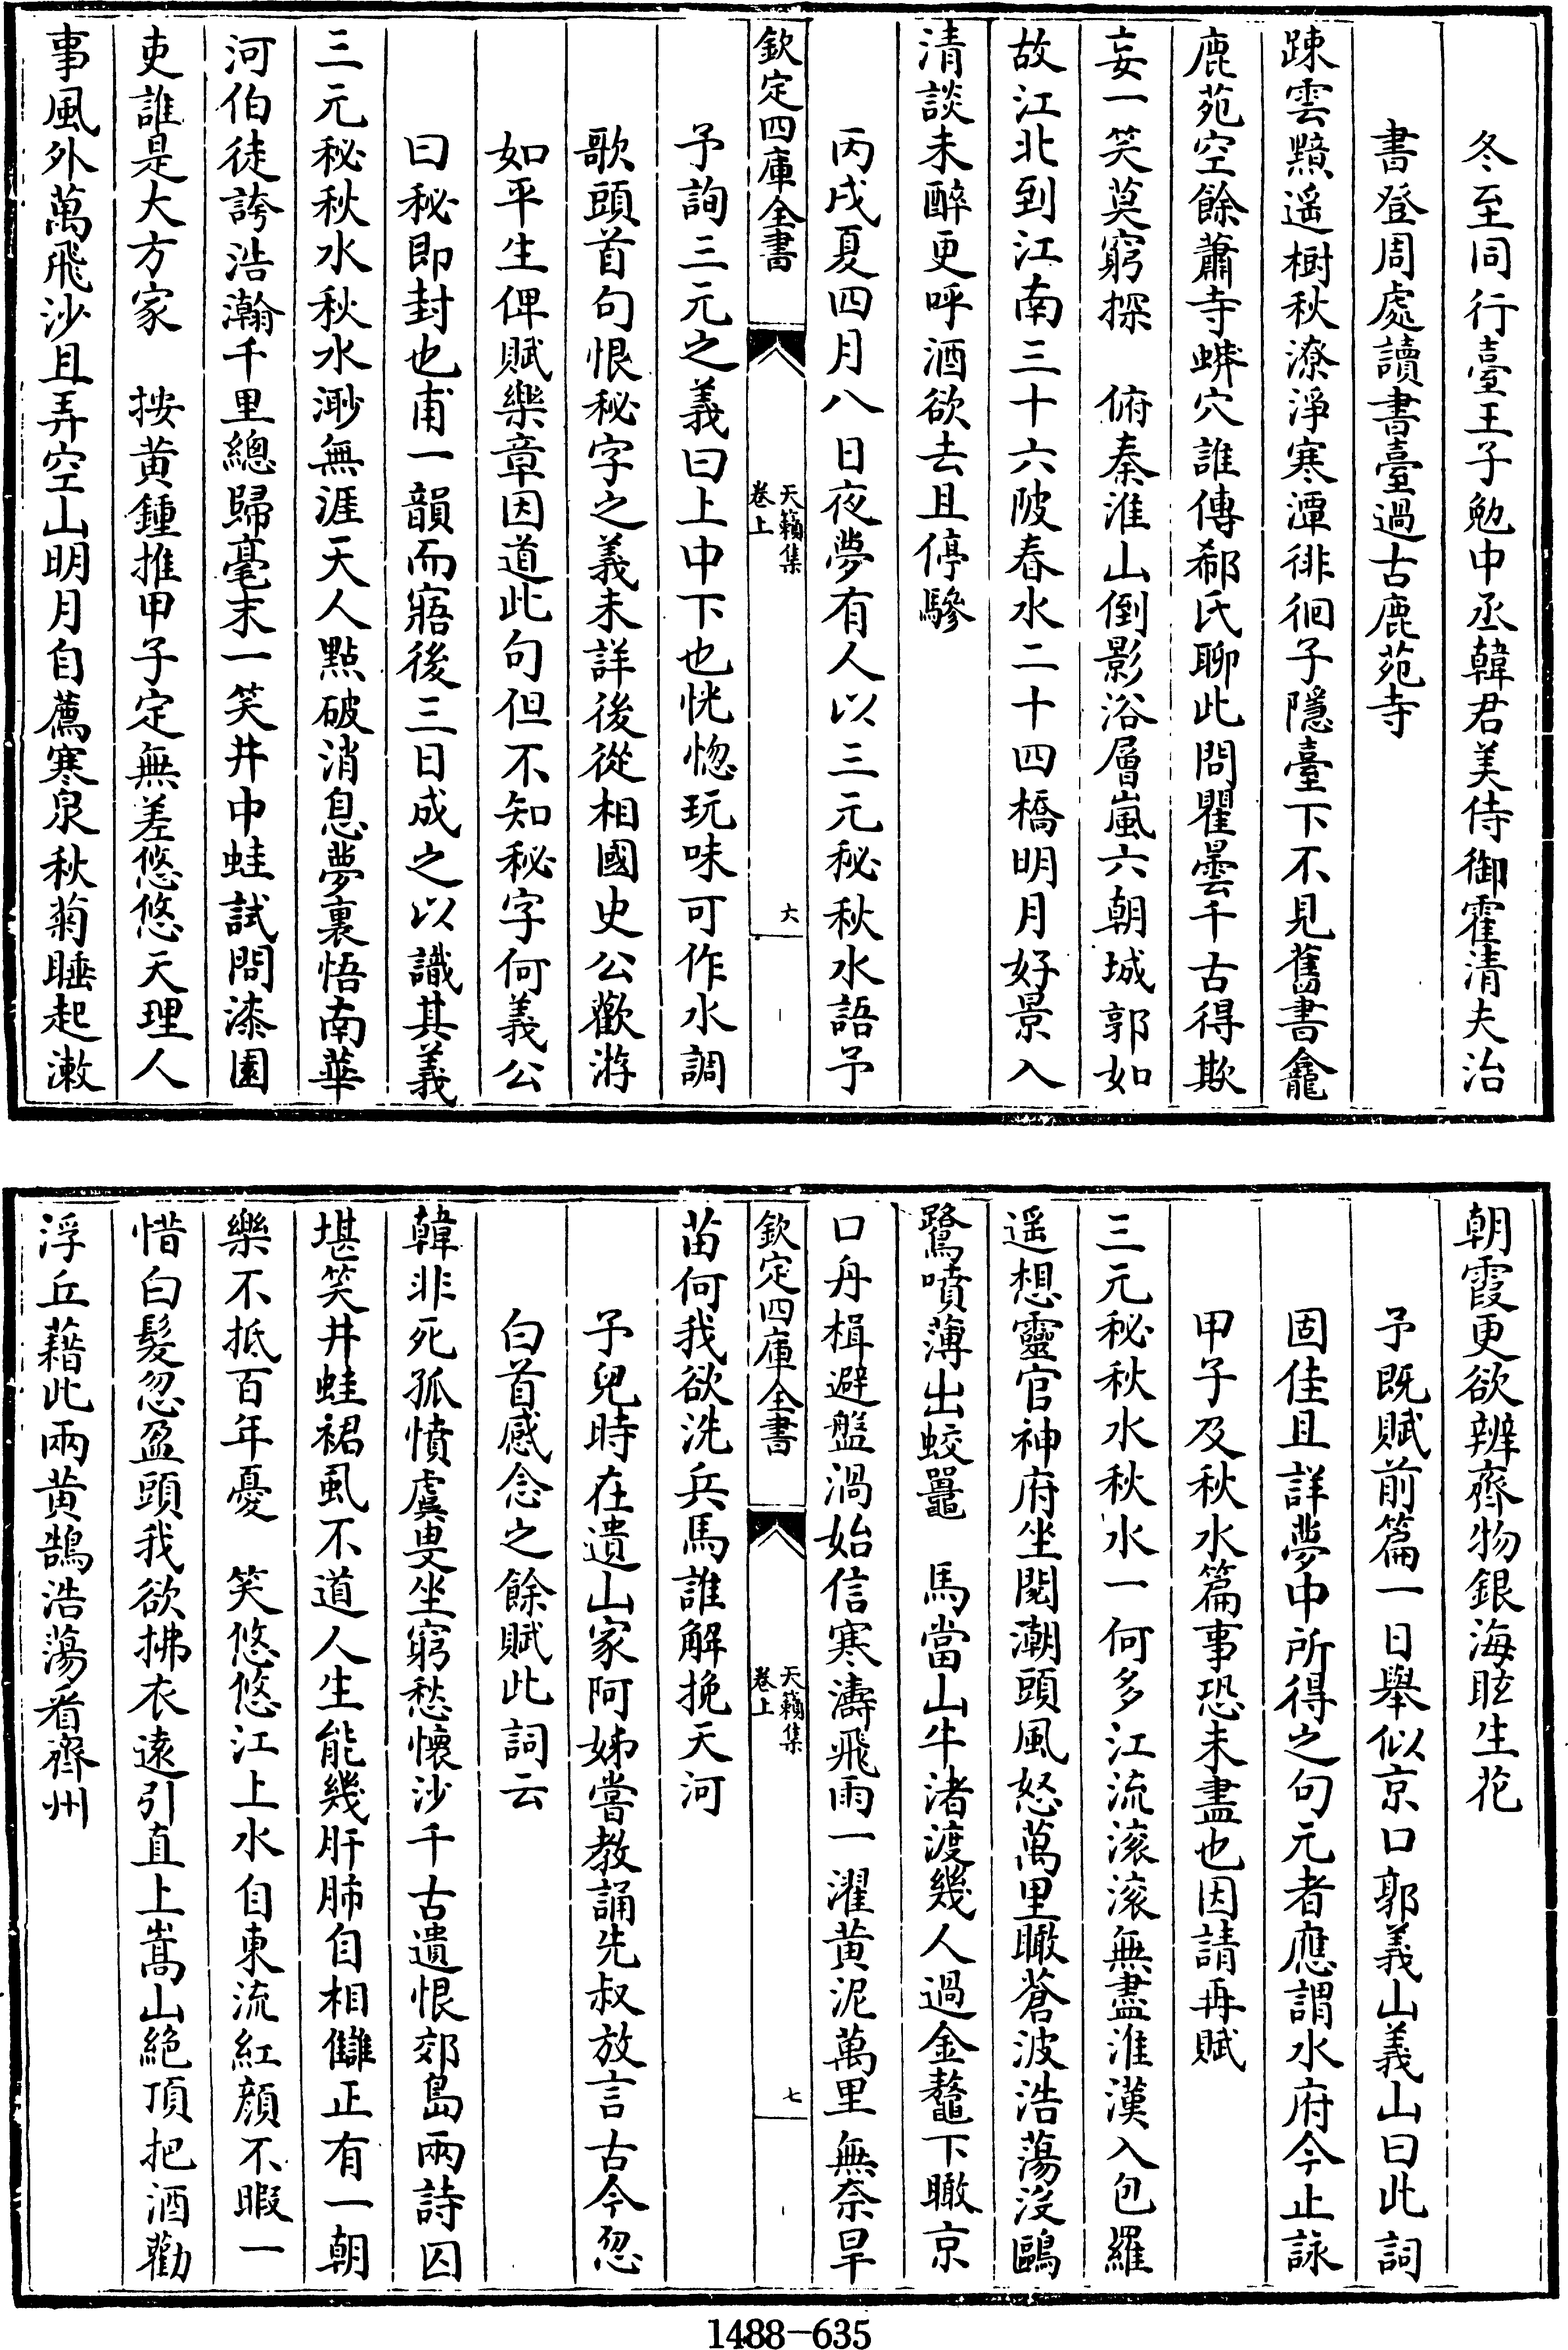 冬至同行臺王子勉中丞韓君美侍御霍清夫治
書登周處讀書臺過古鹿苑寺
疎雲黯遥樹秋潦淨寒潭徘徊子隱臺下不見舊書龕
鹿苑空餘蕭寺蟒穴誰傳郗氏聊此問瞿曇千古得欺
妄一笑莫窮探　俯秦淮山倒影浴層嵐六朝城郭如
故江北到江南三十六陂春水二十四橋明月好景入
清談未醉更呼酒欲去且停驂
丙戌夏四月八日夜夢有人以三元秘秋水語予
欽定四庫全書
天籟集
卷上
六
予詢三元之義曰上中下也恍惚玩味可作水調
歌頭首句恨秘字之義未詳後從相國史公歡游
如平生俾賦樂章因道此句但不知秘字何義公
曰秘即封也甫一韻而寤後三日成之以識其義
三元秘秋水秋水渺無涯天人點破消息夢裏悟南華
河伯徒誇浩瀚千里總歸毫末一笑井中蛙試問漆園
吏誰是大方家　按黄鍾推甲子定無差悠悠天理人
事風外萬飛沙且弄空山明月自薦寒泉秋菊睡起漱
朝霞更欲辨齊物銀海眩生花
予既賦前篇一日舉似京口郭義山義山曰此詞
固佳且詳夢中所得之句元者應謂水府今止詠
甲子及秋水篇事恐未盡也因請再賦
三元秘秋水秋水一何多江流滚滚無盡淮漢入包羅
遥想靈官神府坐閲潮頭風怒萬里瞰蒼波浩蕩没鷗
鷺噴薄出蛟鼉　馬當山牛渚渡幾人過金鼇下瞰京
口舟楫避盤渦始信寒濤飛雨一濯黄泥萬里無奈旱
欽定四庫全書
天籟集
卷上
七
苗何我欲洗兵馬誰解挽天河
予兒時在遺山家阿姊嘗教誦先叔放言古今忽
白首感念之餘賦此詞云
韓非死孤憤虞叟坐窮愁懷沙千古遺恨郊島兩詩囚
堪笑井蛙裙虱不道人生能幾肝肺自相讎正有一朝
樂不抵百年憂　笑悠悠江上水自東流紅顔不暇一
惜白髮忽盈頭我欲拂衣遠引直上嵩山絶頂把酒勸
浮丘藉此兩黄鵠浩蕩看齊州
1488-635